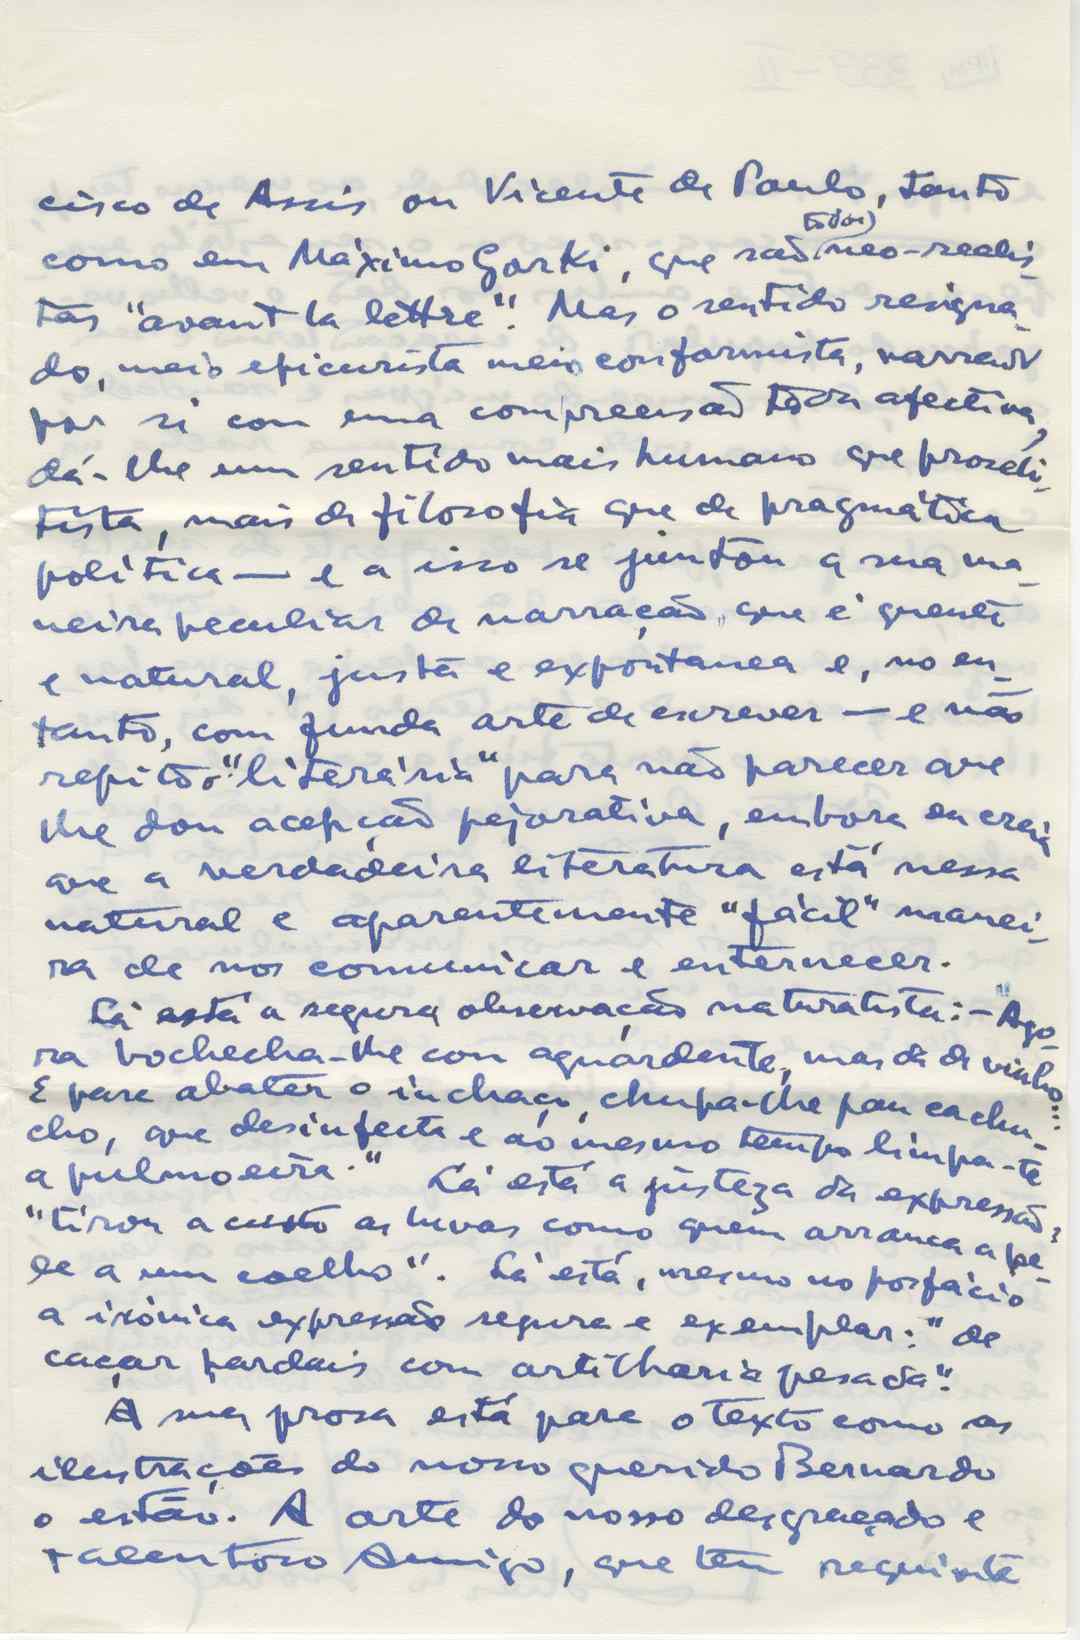 cisco de Assis ou Vicente de Paulo, tanto
como em Máximo Gorki, que são (todos) neo-realis-
tas "avant la lettre". Mas o sentido resigna-
do, meio epicurista meio conformista, narrado
por si com uma compreensão toda afectiva,
dá-lhe um sentido mais humano que proseli-
tista, mais de filosofia que de pragmática
política — e a isso se juntou a sua ma-
neira peculiar de narração, que é quente
e natural, justa e expontanea e, no en-
tanto, com funda arte de escrever — e não
repito o "literária" para não parecer que
lhe dou acepção pejorativa, embora eu creia
que a verdadeira literatura está nessa
natural e aparentemente "fácil" manei-
ra de nos comunicar e enternecer.
Lá está a segura observação naturalista: - "Ago-
ra bochecha-lhe com aguardente, mas da de vinho...
E para abater o inchaço, chupa-lhe pau cachu-
cho, que desinfecta e ao mesmo tempo limpa-te
a pulmoeira." Lá está a justeza da expressão,
"tirou a custo as luvas como quem arranca a pe-
le a um coelho". Lá está, mesmo no posfácio
a irónica expressão segura e exemplar: "de
caçar pardais com artilharia pesada".
A sua prosa está para o texto como as
ilustrações do nosso querido Bernardo
o estão. A arte do nosso desgraçado e
talentoso Amigo, que tem